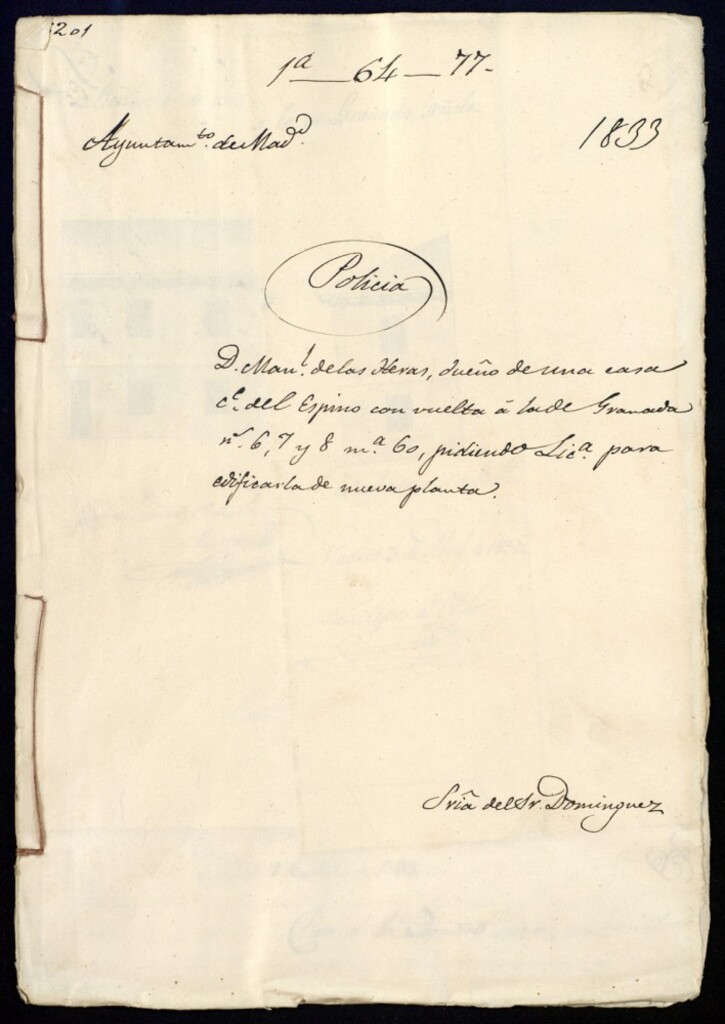 1ª — 64 — 77-
Ayuntam.to de Mad.d
1833
Policia
D. Man.l de las Heras, dueño de una casa
c.e del Espino con vuelta á la de Granada
n.s 6, 7 y 8 m.a 60, pidiendo Lic.a para
edificarla de nueva planta.
Sria del Sr. Dominguez